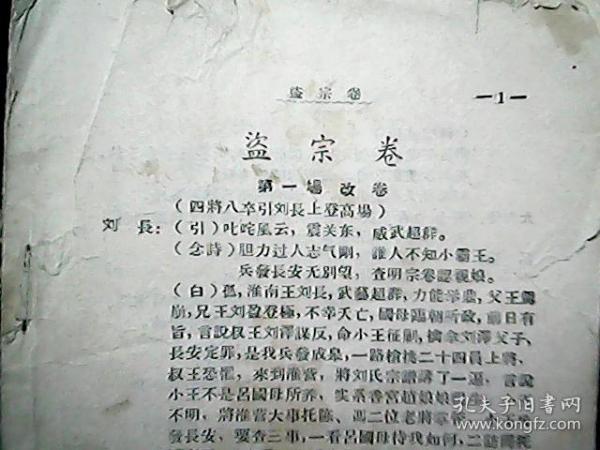 盗宗卷
—1—
盜宗卷
第一場 改卷
(四將八卒引刘長上登高場)
刘長:(引)叱咤風云,震关东,威武超羣。
(念詩)胆力过人志气剛,誰人不知小霸王。
兵發長安无別望,查明宗卷認親娘。
(白)孤,淮南王刘長,武藝超羣,力能举鼎,父王駕
崩,兄王刘盈登極,不幸夭亡,國母臨朝听政,前日有
旨,言說叔王刘澤謀反,命小王征剿,擒拿刘澤父子,
長安定罪,是我兵發成皋,一路槍挑二十四員上將,
叔王恐惧,來到淮营,將刘氏宗譜講了一遍,言說
小王不是呂國母所养,实系香宮趙娘娘
不明,將淮营大事托陈、馮二位老將軍
發長安,要查三事,一看呂國母待我如何,二訪
孔夫子旧书网
www.kongfz.com